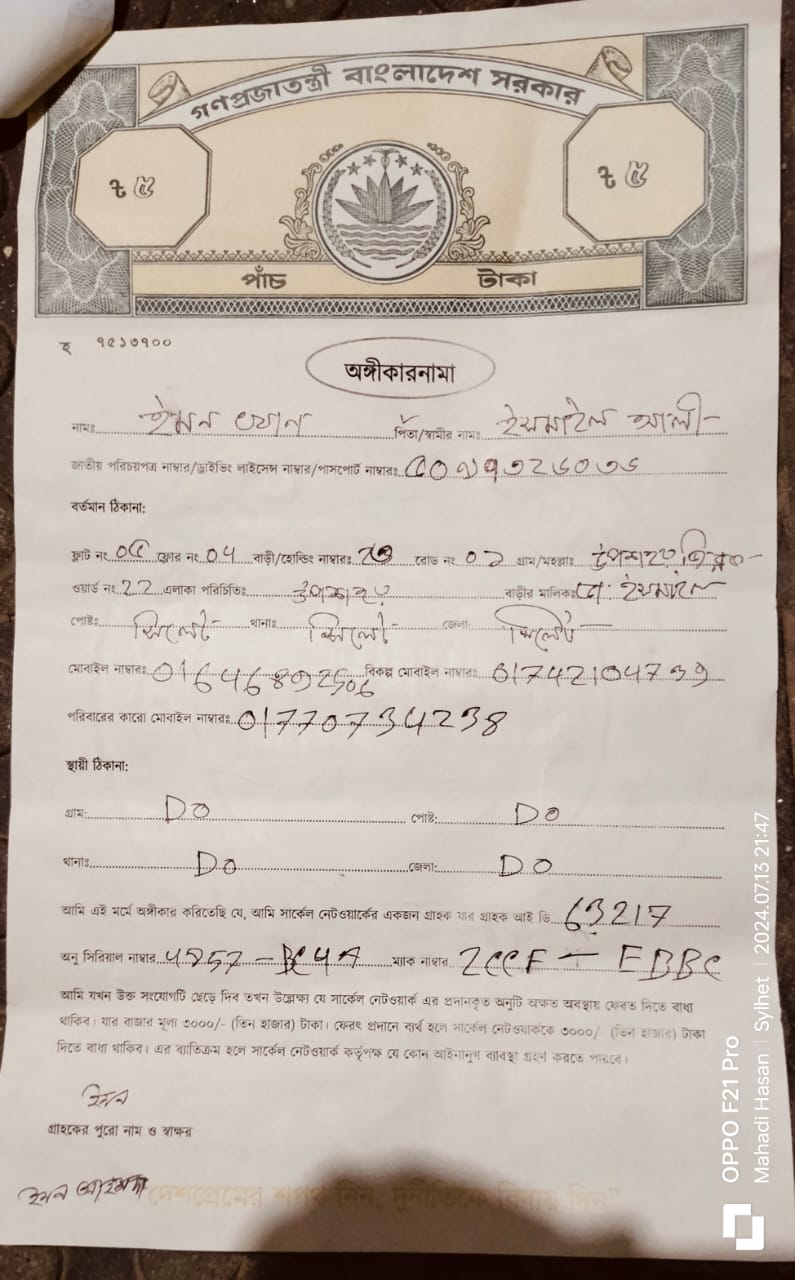 গণপ্রজাতন্ত্রী বাংলাদেশ সরকার
৳ ৫ ৳ ৫
পাঁচ টাকা
হ ৭৫১৩৭০০
অঙ্গীকারনামা
নামঃ ইমন পিতা/স্বামীর নামঃ ইসমাইল আলী
জাতীয় পরিচয়পত্র নাম্বার/ড্রাইভিং লাইসেন্স নাম্বার/পাসপোর্ট নাম্বারঃ
বর্তমান ঠিকানা:
ফ্লাট নং ০৫ ফ্লোর নং ০৪ বাড়ী/হোল্ডিং নাম্বারঃ রোড নং ০১ গ্রাম/মহল্লাঃ উপশহর
ওয়ার্ড নং 22 এলাকা পরিচিতিঃ উপশহর বাড়ীর মালিকঃ মো: ইসমাইল
পোষ্টঃ সিলেট থানাঃ সিলেট জেলা: সিলেট
মোবাইল নাম্বারঃ বিকল্প মোবাইল নাম্বারঃ 01742104739
পরিবারের কারো মোবাইল নাম্বারঃ 01770734238
স্থায়ী ঠিকানা:
গ্রাম: DO পোষ্ট: DO
থানাঃ DO জেলা: DO
আমি এই মর্মে অঙ্গীকার করিতেছি যে, আমি সার্কেল নেটওয়ার্কের একজন গ্রাহক যার গ্রাহক আই ডি 63217
অনু সিরিয়াল নাম্বার ম্যাক নাম্বার
আমি যখন উক্ত সংযোগটি ছেড়ে দিব তখন উল্লেক্ষা যে সার্কেল নেটওয়ার্ক এর প্রদানকৃত অনুটি অক্ষত অবস্থায় ফেরত দিতে বাধ্য
থাকিব। যার বাজার মূল্য ৩০০০/- (তিন হাজার) টাকা। ফেরৎ প্রদানে ব্যর্থ হলে সার্কেল নেটওয়ার্ককে ৩০০০/ (তিন হাজার) টাকা
দিতে বাধ্য থাকিব। এর ব্যতিক্রম হলে সার্কেল নেটওয়ার্ক কর্তৃপক্ষ যে কোন আইনানুগ ব্যাবস্থা গ্রহণ করতে পারবে।
ইমন
গ্রাহকের পুরো নাম ও স্বাক্ষর
ইমন আহমদ
"দেশপ্রেমের শপথ নিন, দুর্নীতিকে বিদায় দিন"
OPPO F21 Pro
Mahadi Hasan | Sylhet | 2024.07.13 21:47